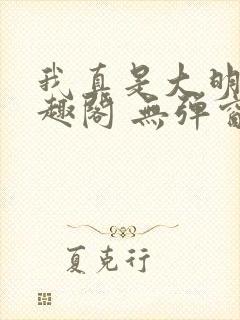 我真是大明
趣阁 無弹窗
夏克行